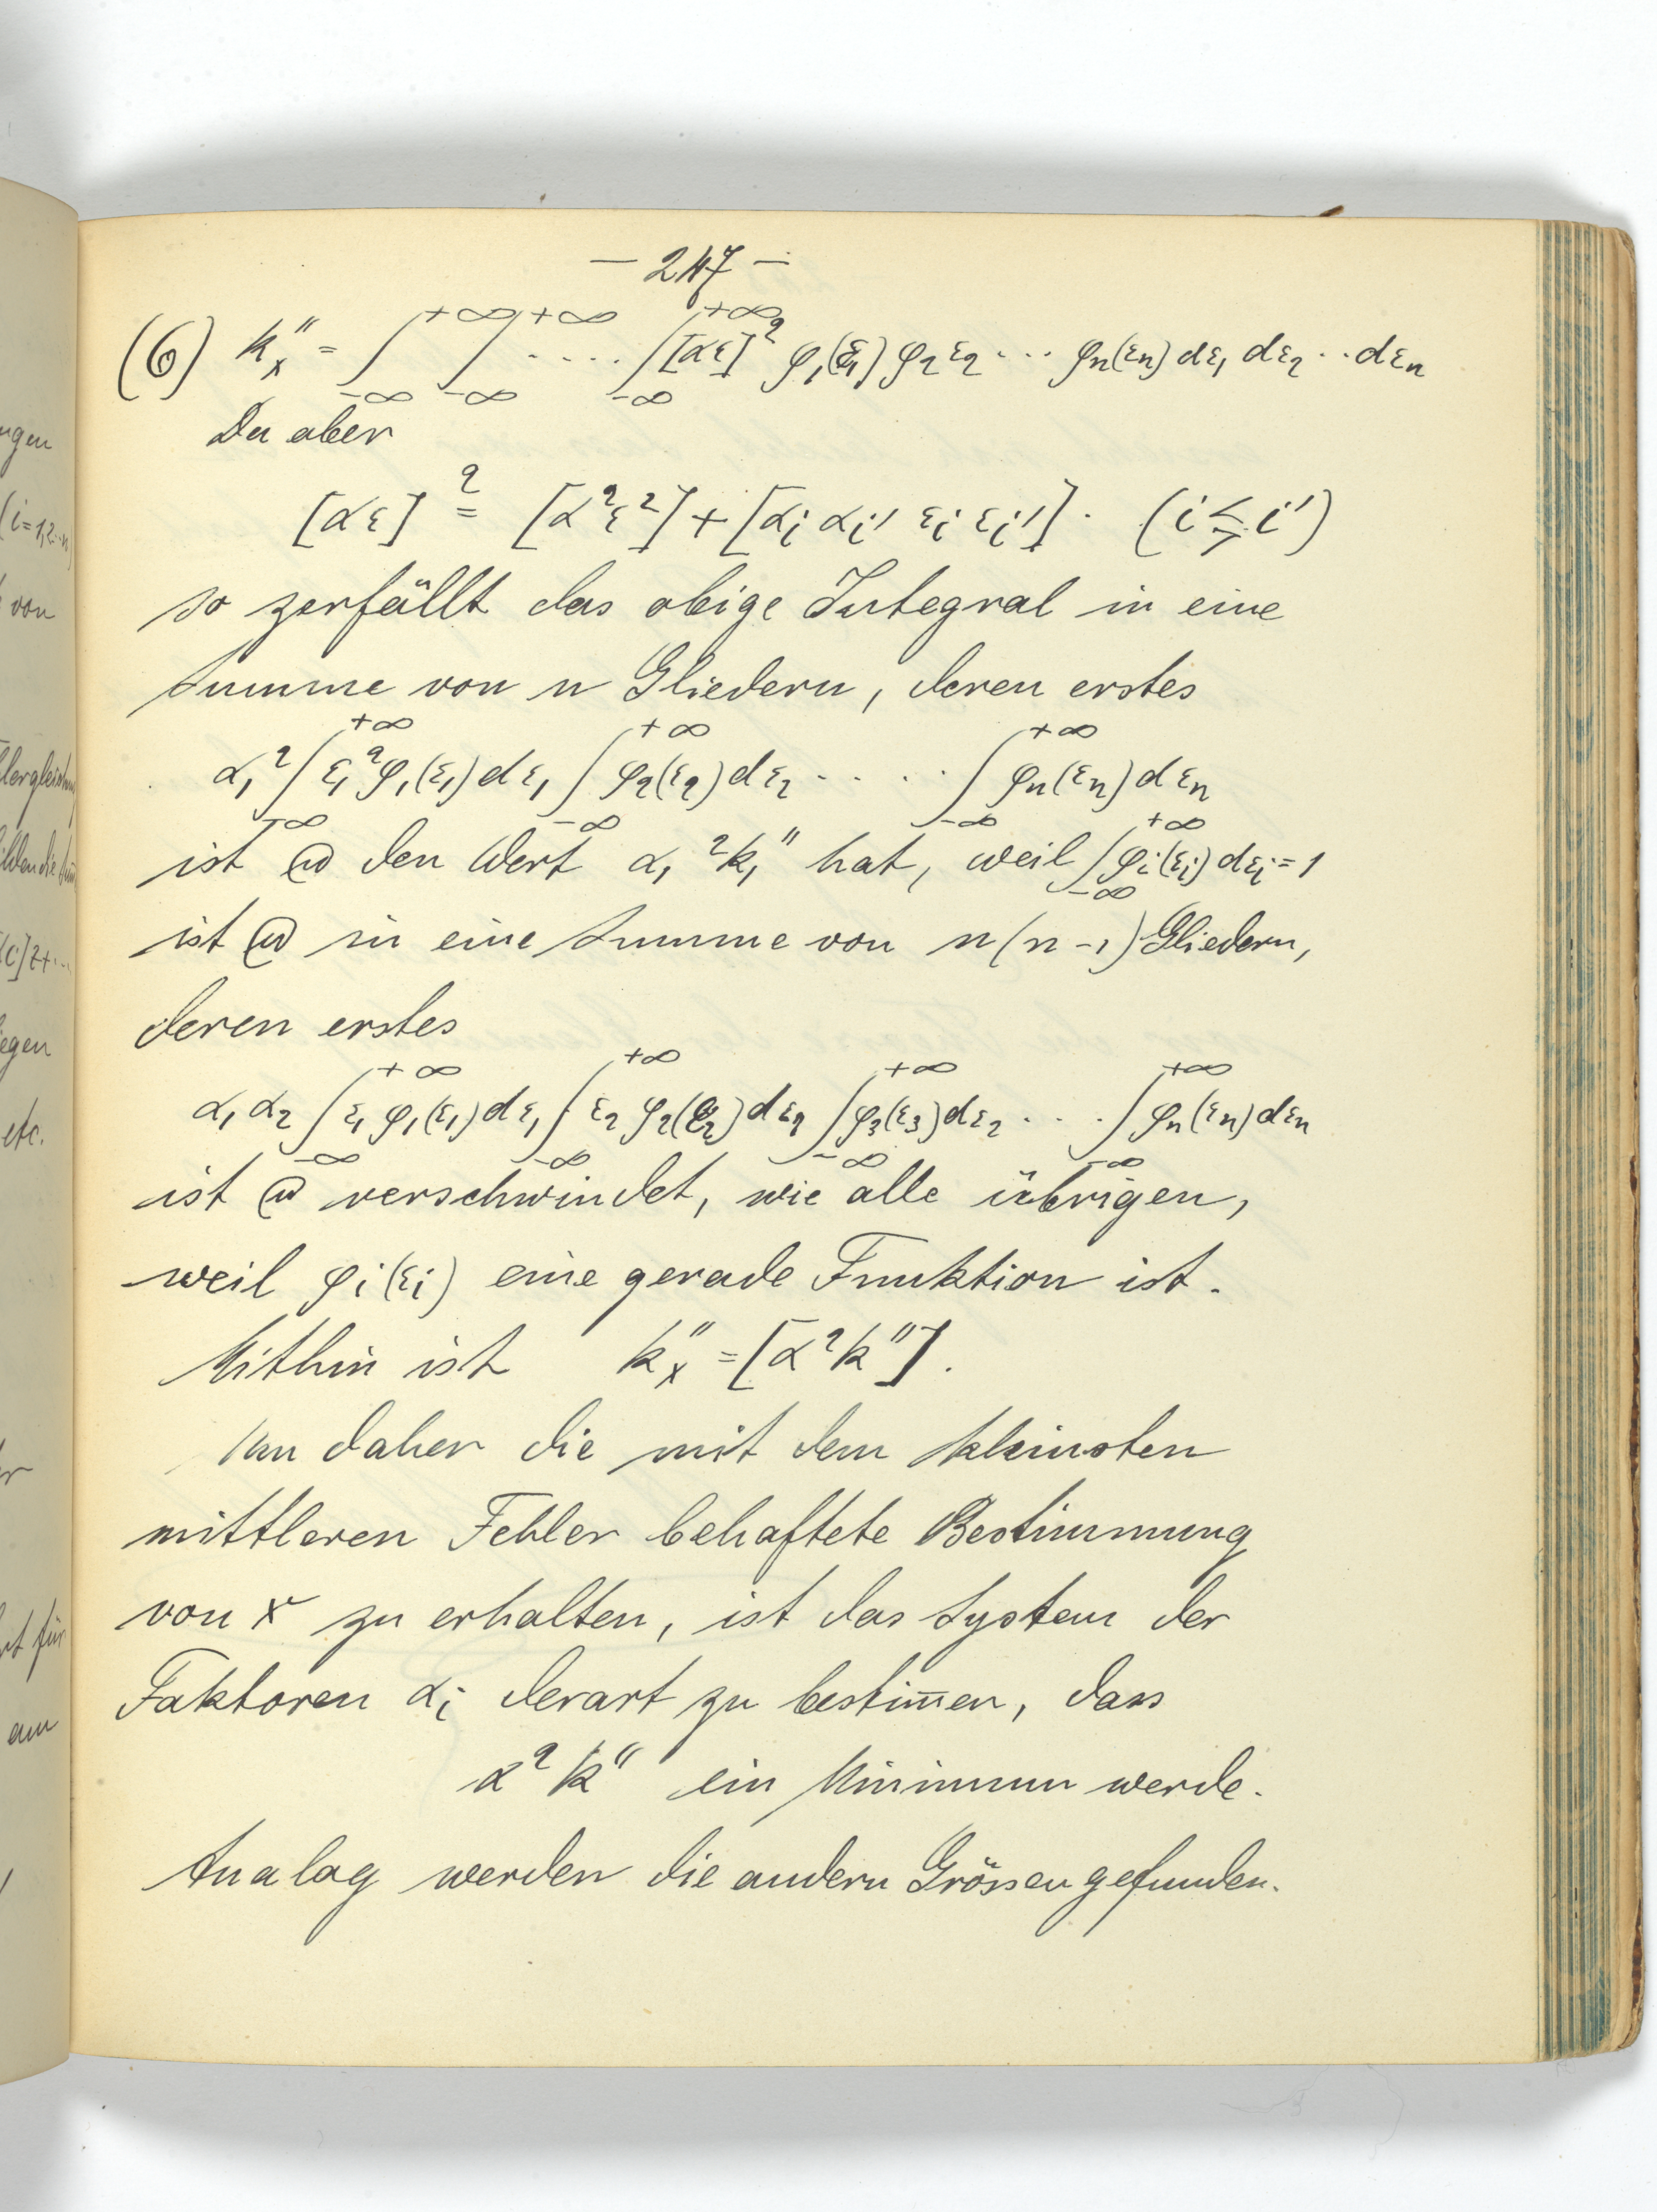 — 247 —
(6) k″ₓ = ∫₋∞⁺∞ ∫₋∞⁺∞ .... ∫₋∞⁺∞ [αε]² φ₁(ε₁) φ₂ ε₂ ... φₙ(εₙ) dε₁ dε₂ .. dεₙ
Da aber
[αε]² = [α²ε²] + [αᵢ αᵢ′ εᵢ εᵢ′] . (i ≶ i′)
so zerfällt das obige Integral in eine
Summe von n Gliedern, deren erstes
α₁² ∫₋∞⁺∞ ε₁² φ₁(ε₁) dε₁ ∫₋∞⁺∞ φ₂(ε₂) dε₂ ..... ∫₋∞⁺∞ φₙ(εₙ) dεₙ
ist den Wert α₁² k₁″ hat, weil ∫₋∞⁺∞ φᵢ(εᵢ) dεᵢ = 1
ist in eine Summe von n(n-1) Gliedern,
deren erstes
α₁ α₂ ∫₋∞⁺∞ ε₁ φ₁(ε₁) dε₁ ∫₋∞⁺∞ ε₂ φ₂(ε₂) dε₂ ∫₋∞⁺∞ φ₃(ε₃) dε₂ ... ∫₋∞⁺∞ φₙ(εₙ) dεₙ
ist verschwindet, wie alle übrigen,
weil φᵢ(εᵢ) eine gerade Funktion ist.
Mithin ist k″ₓ = [α² k″].
Um daher die mit dem kleinsten
mittleren Fehler behaftete Bestimmung
von x zu erhalten, ist das System der
Faktoren αᵢ derart zu bestim̄en, dass
α² k″ ein Minimum werde.
Analog werden die andern Grössen gefunden.